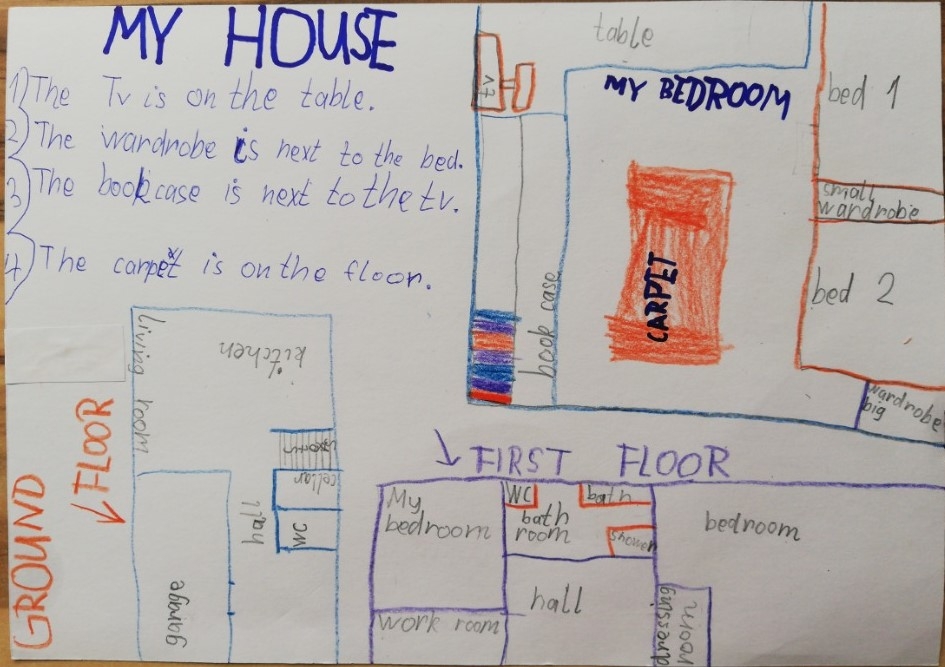 MY HOUSE
1) The Tv is on the table.
2) The wardrobe is next to the bed.
3) The bookcase is next to the tv.
4) The carpet is on the floor.
table
tv
MY BEDROOM
bed 1
small
wardrobe
bed 2
CARPET
book case
wardrobe
big
GROUND
FLOOR
living room
kitchen
cellar
hall
WC
garage
FIRST FLOOR
My
bedroom
WC
bath
bath
room
shower
bedroom
hall
work room
dressing
room